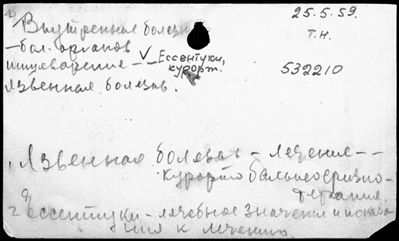 Внутренние болезни
25.5.59.
- бол. органов
Т.Н.
пищеварения - V - Ессентуки,
курорт.
532210
Язвенная болезнь.
1. Язвенная болезнь - лечение - -
Курорто бальнеофизио-
терапия.
2. Ессентуки - лечебное значение и показа
ния к лечению.